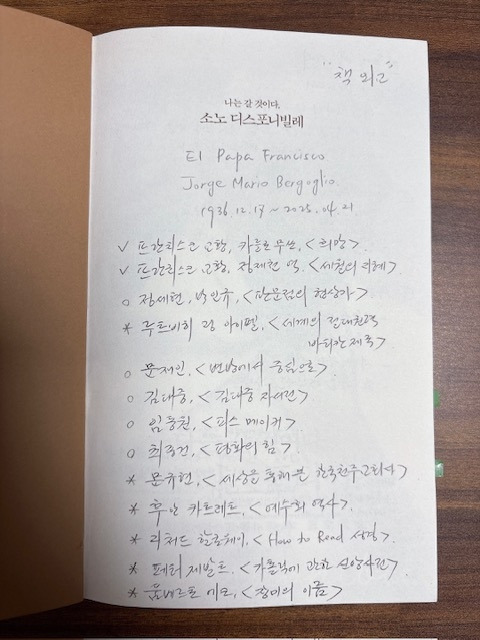 "책 외고"
나는 갈 것이다.
소노 디스포니빌레
El Papa Francisco
Jorge Mario Bergoglio
1936.12.17 ~ 2025.04.21
✓ 프란치스코 교황, 카를로 무쏘, <희망>.
✓ 프란치스코 교황, 정제천 역, <세월의 지혜>
○ 정세현, 박인규, <판문점의 협상가>
* 루트비히 링 아이펠, <세계의 절대권력
바티칸 제국>
○ 문재인, <변방에서 중심으로>
○ 김대중, <김대중 자서전>
○ 임동원, <피스 메이커>
○ 최종건, <평화의 힘>
* 문규현, <세상을 통해 본 한국천주교회사>
* 후안 카트레트, <예수회 역사>
* 리처드 할로웨이, <How to Read 성경>
* 페터 제발트, <가톨릭에 관한 신앙사전>
* 움베르토 에코, <장미의 이름>